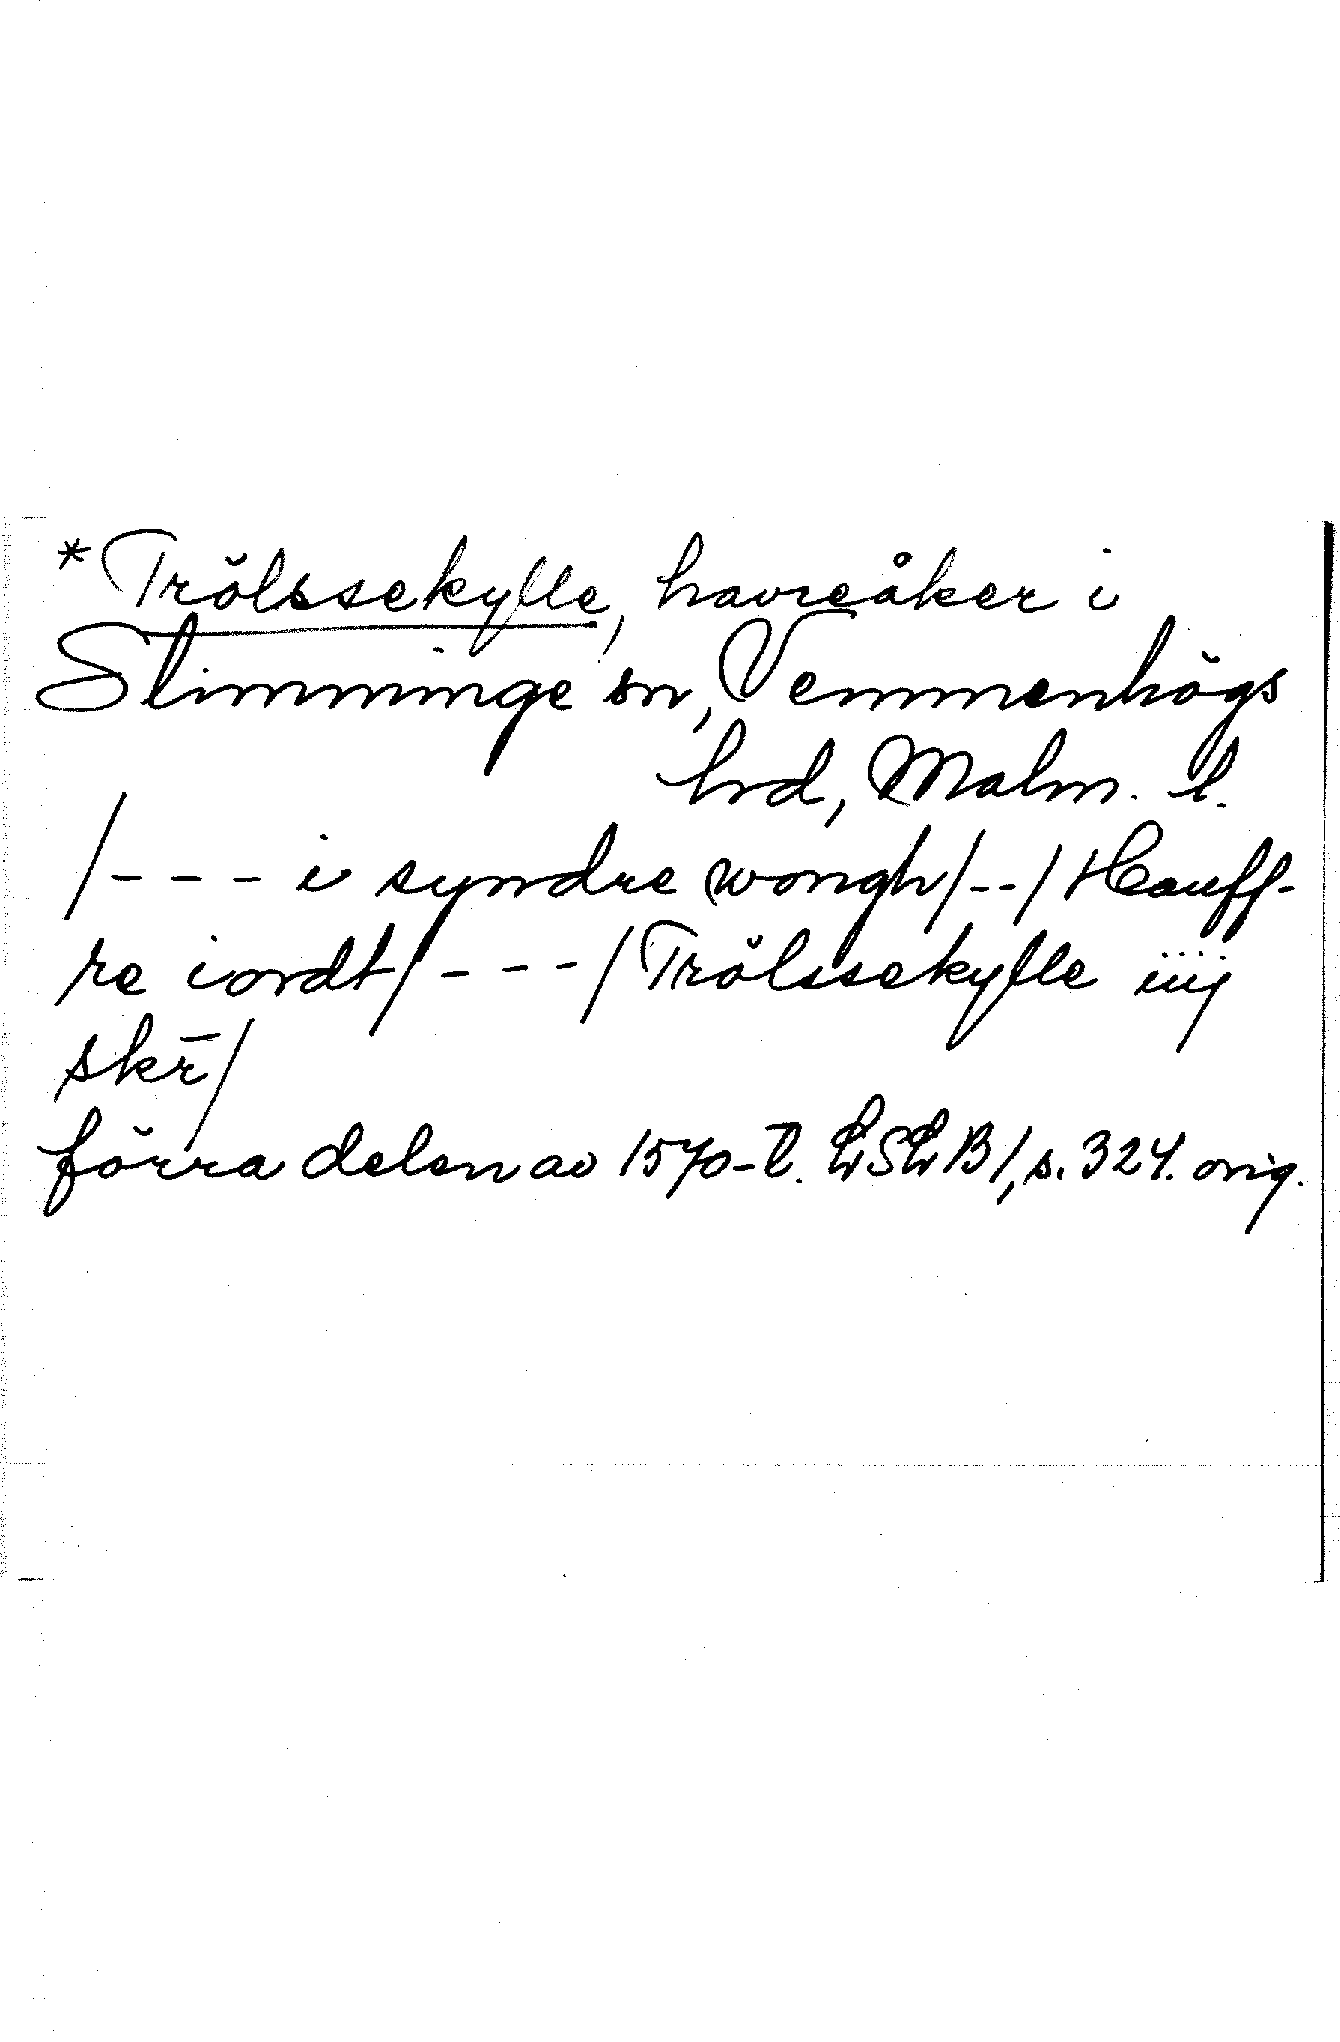 *Trölssekylle, havreåker i
Slimminge sn, Vemmenhögs
hrd, Malm. l.
/- - - i syndre wongh/--/Hauff-
re iordt/- - -/Trölssekylle iiij
skr̄/
förra delen av 1570-t. LSLB1, s. 324. orig.